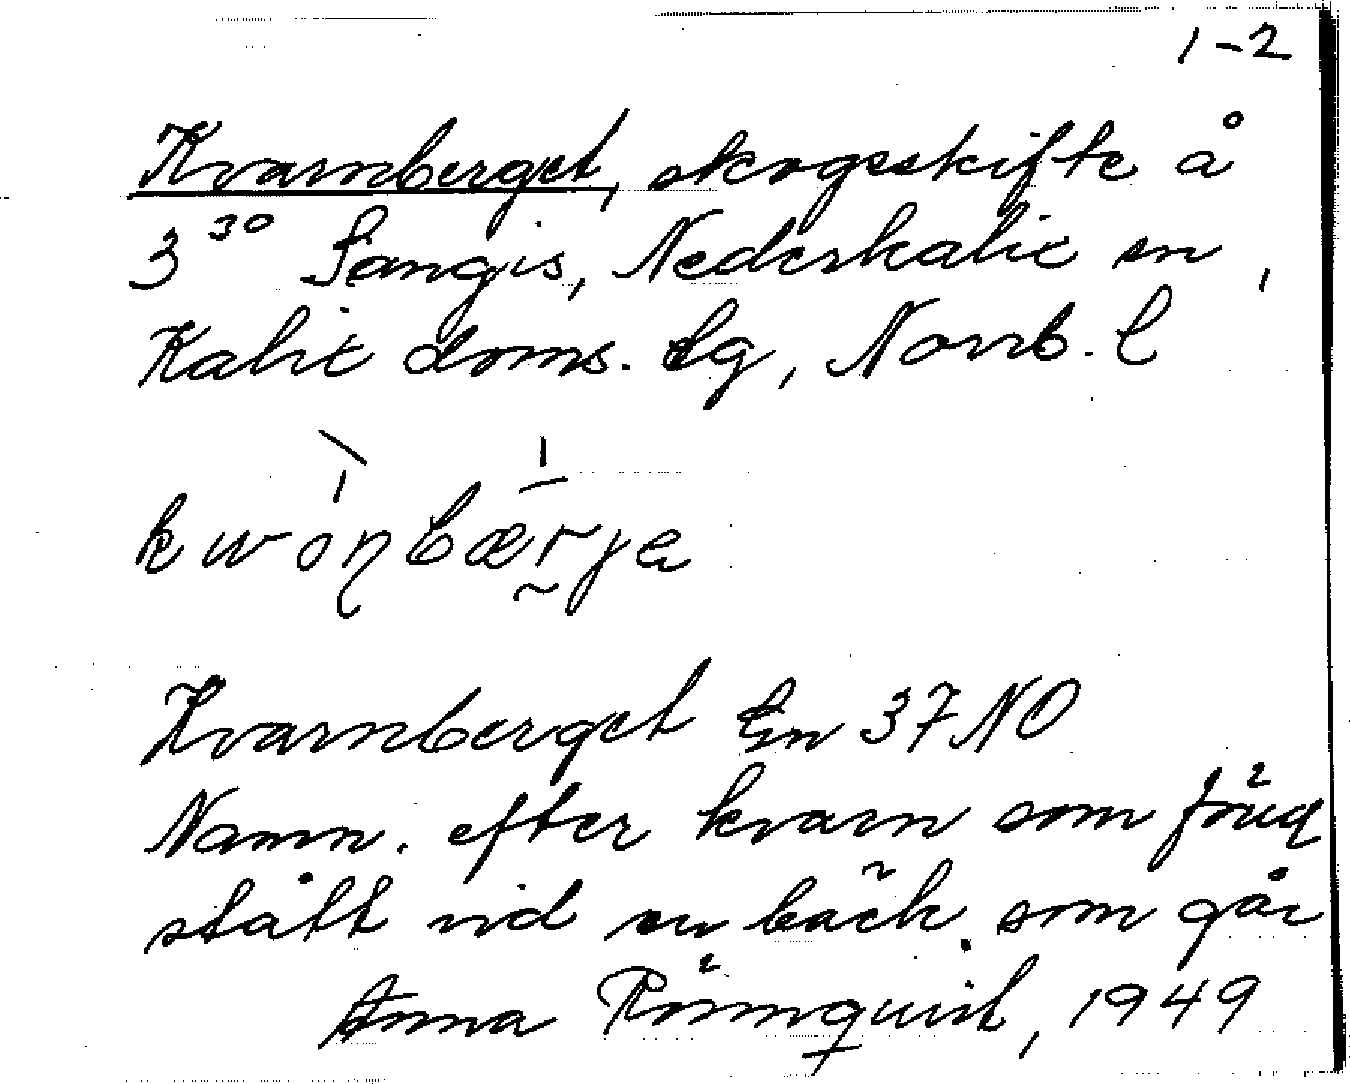 1-2
Kvarnberget, skogsskifte å
3³⁰ Sangis, Nederkalix sn,
Kalix doms. lg, Norrb. l
Kvarnberget En 37 NO
Namn. efter kvarn som förut
stått vid en bäck som går
Anna Römquist, 1949